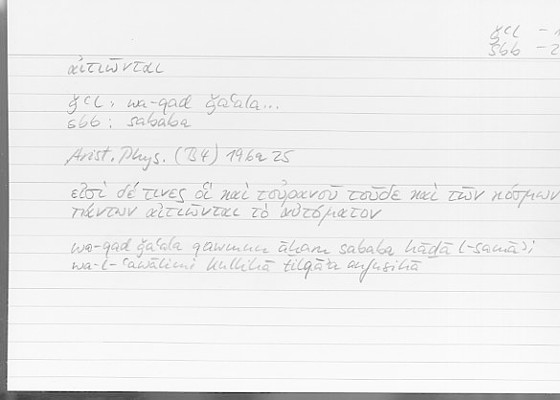 ǧʿl – 1
sbb – 2
αἰτιῶνται
ǧʿl : wa-qad ǧaʿala...
sbb : sababa
Arist. Phys. (B4) 196a 25
εἰσὶ δέ τινες οἳ καὶ τοὐρανοῦ τοῦδε καὶ τῶν κόσμων
πάντων αἰτιῶνται τὸ αὐτόματον
wa-qad ǧaʿala qawmun āḫaru sababa hāḏā l-samāʾi
wa-l-ʿawālimi kullihā tilqāʾa anfusihā